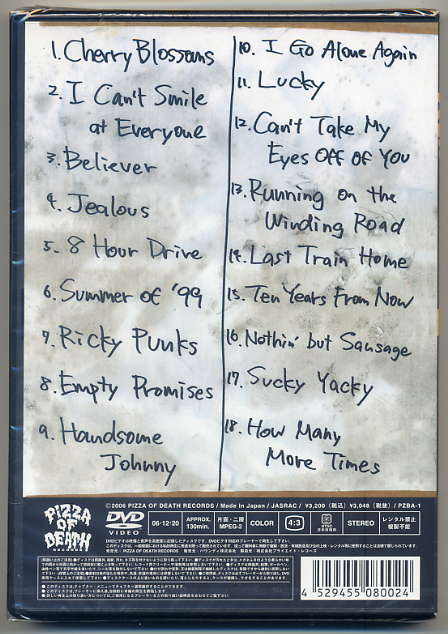 1. Cherry Blossoms
2. I Can't Smile
at Everyone
3. Believer
4. Jealous
5. 8 Hour Drive
6. Summer of '99
7. Ricky Punks
8. Empty Promises
9. Handsome
Johnny
10. I Go Alone Again
11. Lucky
12. Can't Take My
Eyes Off of You
13. Running on the
Winding Road
14. Last Train Home
15. Ten Years From Now
16. Nothin' but Sausage
17. Sucky Yacky
18. How Many
More Times
PIZZA
OF
DEATH
RECORDS
©2006 PIZZA OF DEATH RECORDS / Made in Japan / JASRAC / ¥3,200 (税込) / ¥3,048 (税抜) / PZBA-1
DVD
VIDEO
06-12-20
APPROX.
130min.
片面・二層
MPEG-2
COLOR
4:3
STEREO
レンタル禁止
複製不能
4 529455 080024